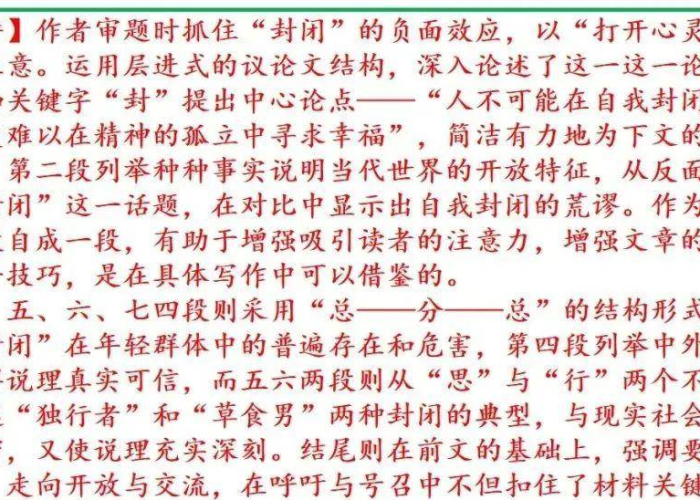 】作者审题时抓住“封闭”的负面效应，以“打开心灵
意。运用层进式的议论文结构，深入论述了这一这一论
关键字“封”提出中心论点——“人不可能在自我封闭
难以在精神的孤立中寻求幸福”，简洁有力地为下文的
第二段列举种种事实说明当代世界的开放特征，从反面
闭”这一话题，在对比中显示出自我封闭的荒谬。作为
自成一段，有助于增强吸引读者的注意力，增强文章的
技巧，是在具体写作中可以借鉴的。
五、六、七四段则采用“总——分——总”的结构形式
闭”在年轻群体中的普遍存在和危害，第四段列举中外
说理真实可信，而五六两段则从“思”与“行”两个不
“独行者”和“草食男”两种封闭的典型，与现实社会
，又使说理充实深刻。结尾则在前文的基础上，强调要
走向开放与交流，在呼吁与号召中不但扣住了材料关键